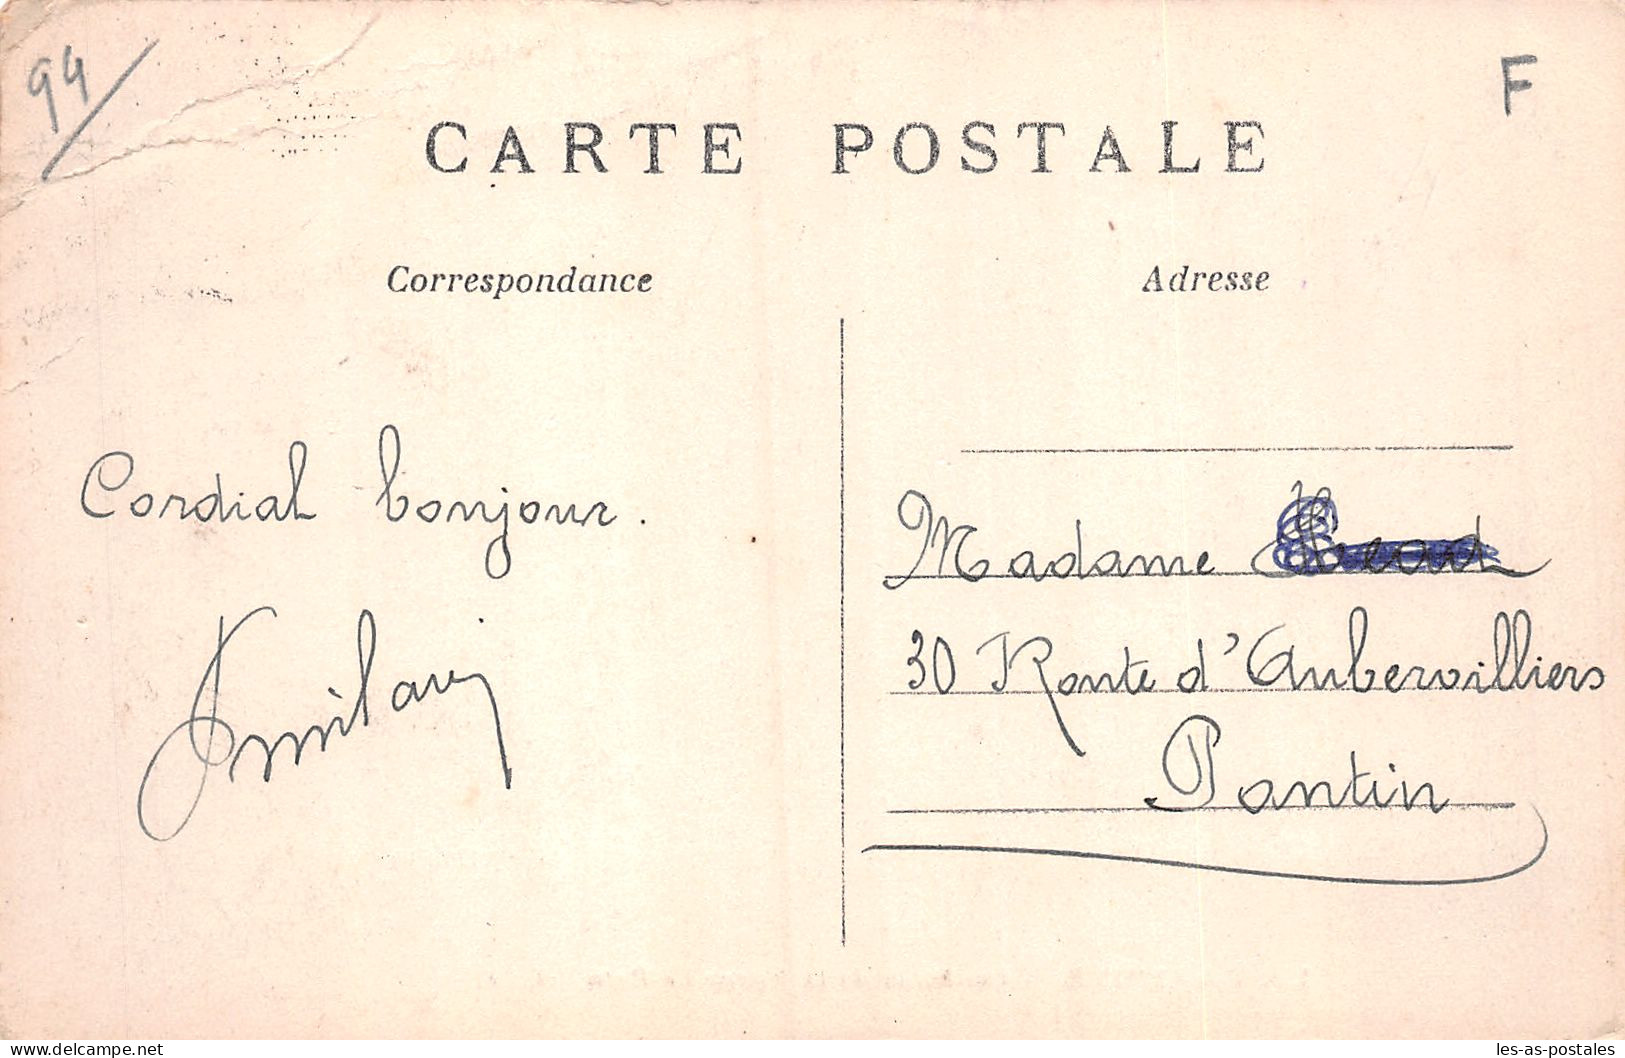 94
F
CARTE POSTALE
Correspondance
Adresse
Cordial bonjour.
Madame
30 Route d'Aubervilliers
Pantin
delcampe.net
les-as-postales